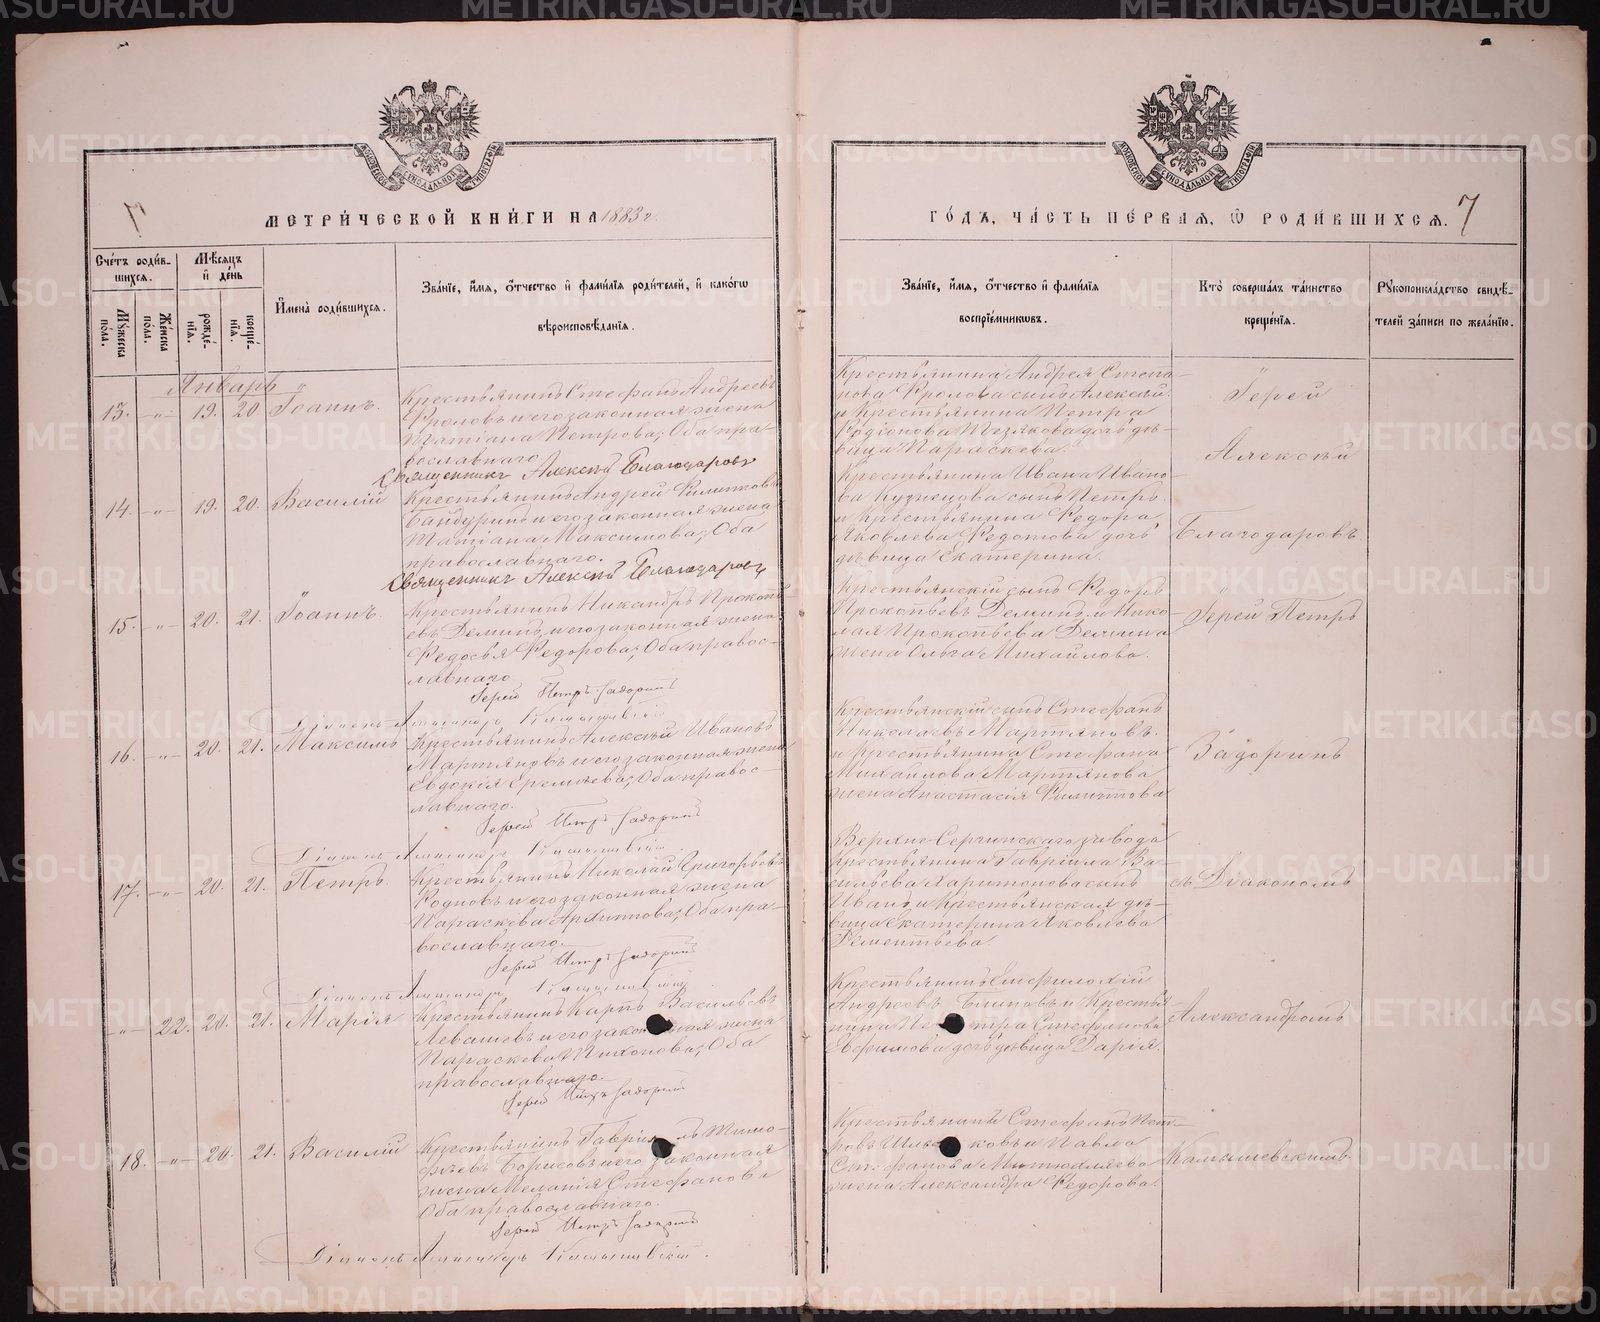 МЕТРИ́ЧЕСКОЙ КНИ́ГИ НА 1883 г.
7
Сче́тъ роди́вшихся.
Мѣсяцъ и́ де́нь
И́мена̀ роди́вшихся.
Зва́нїе, и́мя, о́тчество и́ фами́лїя роди́телей, и́ како́гѡ
вѣроисповѣ́данїя.
Му́жеска по́ла.
Же́нска по́ла.
рожде́нїя.
креще́нїя.
Январь
13. -„- 19. 20 Іоаннъ.
Крестьянинъ Стефанъ Андреевъ
Фроловъ и его законная жена
Татіана Петрова; Оба пра-
вославнаго
Священникъ Алексѣй Благодаровъ
14. -„- 19. 20. Василій
Крестьянинъ Андрей Филиппов
Бандуринъ и его законная жена
Татіана Максимова; Оба
православнаго.
Священникъ Алексѣй Благодаровъ
15. -„- 20. 21. Іоаннъ.
Крестьянинъ Никандръ Прокопь-
евъ Деминъ и его законная жена
Федосья Федорова; Оба правос-
лавнаго
Іерей Петръ Задоринъ
Діаконъ Александръ Камышевскій
16. -„- 20. 21. Максимъ
Крестьянинъ Алексѣй Ивановъ
Мартяновъ и его законная жена
Евдокія Еремѣева; Оба правос-
лавнаго.
Іерей Петръ Задоринъ
Діаконъ Александръ Камышевскій
17. -„- 20. 21. Петръ
Крестьянинъ Николай Григорьевъ
и его законная жена
Параскева Архиппова; Оба пра-
вославнаго.
Іерей Петръ Задоринъ
Діаконъ Александръ Камышевскій
-„- 22. 20. 21. Марія
Крестьянинъ Карпъ Васильевъ
Левашевъ и его законная жена
Параскева Тихонова; Оба
православнаго.
Іерей Петръ Задоринъ
18. -„- 20. 21. Василій
Крестьянинъ Гавріилъ Тимо-
фѣевъ Борисовъ и его законная
жена Меланія Стефанова
Оба православнаго.
Іерей Петръ Задоринъ
Діаконъ Александръ Камышевскій.
ГО́ДЪ, ЧА́СТЬ ПЕ́РВАЯ, Ѡ҆ РОДИ́ВШИХСЯ.
7
Зва́нїе, и́мя, о́тчество и́ фами́лїя
воспрїе́мниковъ.
Кто̀ соверша́лъ та́инство
креще́нїя.
Рꙋкоприкла́дство свидѣ́-
телей за́писи по жела́нїю.
Крестьянина Андрея Степа-
нова Фролова сынъ Алексѣй
и Крестьянина Петра
Родіонова дочь дѣ-
вица Параскева.
Іерей
Алексѣй
Крестьянина Ивана Ивано-
ва Кузнецова сынъ Петръ
и Крестьянина Федора
Яковлева Федотова дочь
дѣвица Екатерина.
Благодаровъ.
Крестьянскій сынъ Федоръ
Прокопьевъ Деминъ и Нико-
лая Прокопьева Демина
жена Ольга Михайлова.
Іерей Петръ
Крестьянскій сынъ Стефанъ
Николаевъ Мартяновъ.
и Крестьянина Стефана
Михайлова Мартянова
жена Анастасія Филиппова
Задоринъ
Верхне-Сергинскаго завода
Крестьянина Гавріила Ва-
сильева Харитонова сынъ
Иванъ и Крестьянская дѣ-
вица Екатерина Яковлева
Дементьева
съ Діакономъ
Крестьянинъ
Андреевъ Блиновъ и Крестья-
нина Петра Стефанова
Ефимова дочь дѣвица Дарія.
Александромъ
Крестьянинъ Стефанъ Пет-
ровъ и Павла
Стефанова
жена Александра Федорова.
Камышевскимъ.
METRIKI.GASO-URAL.RU